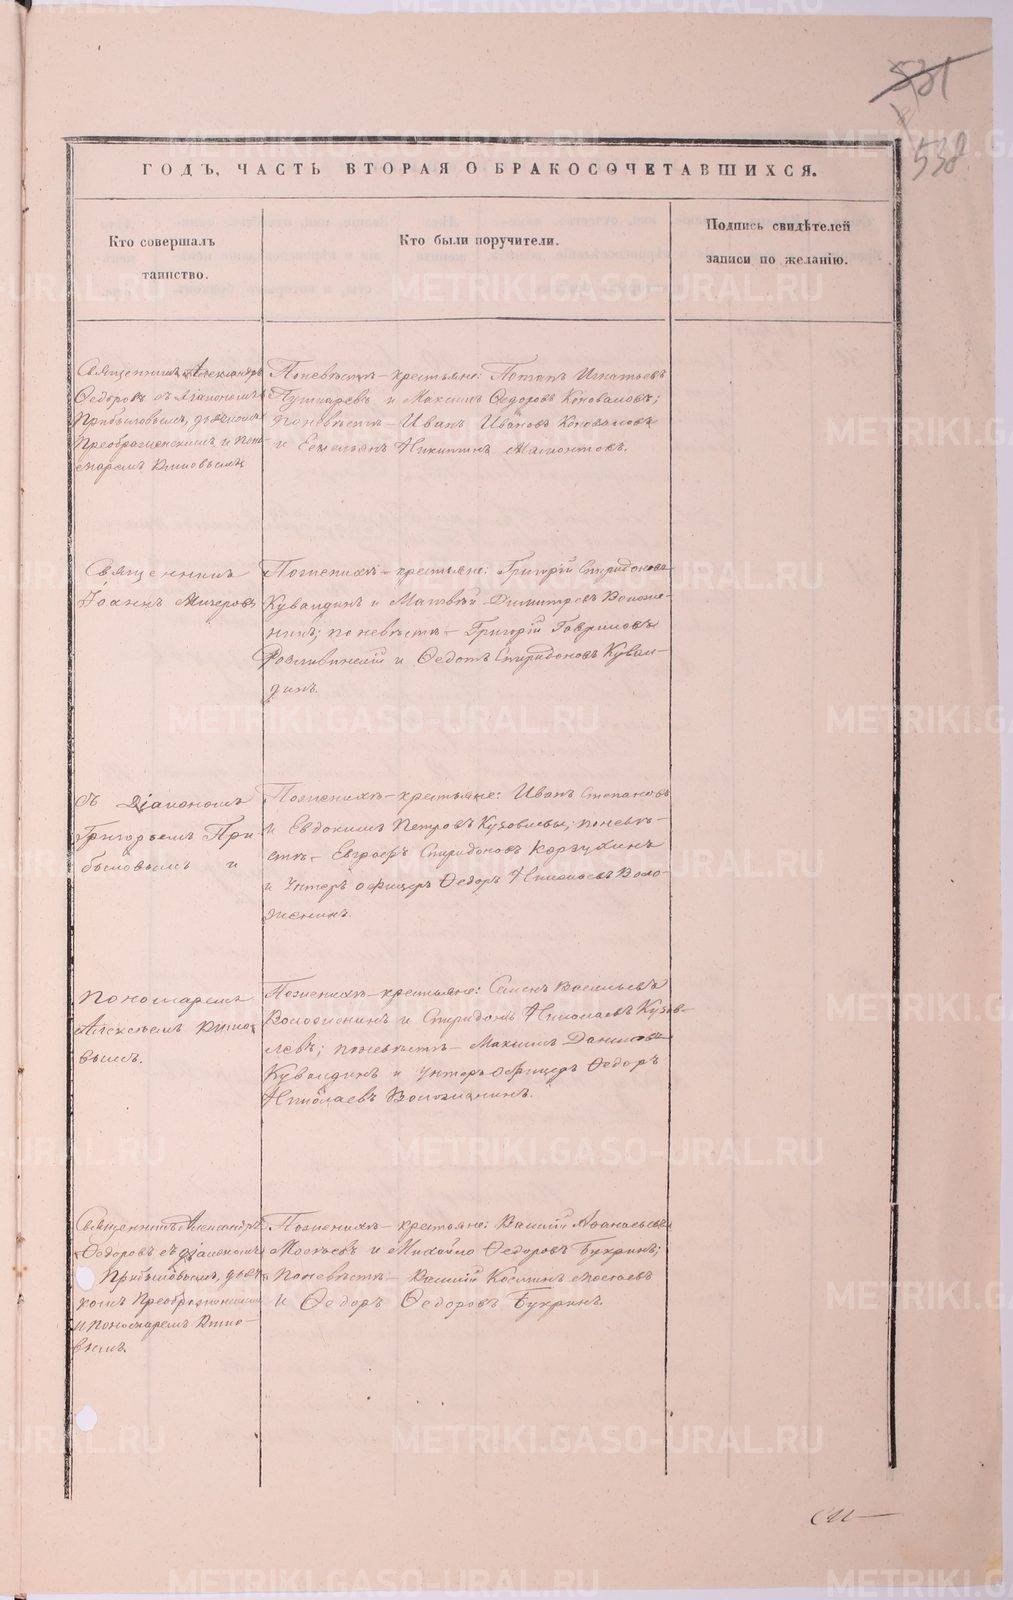 531
538
ГОДЪ, ЧАСТЬ ВТОРАЯ О БРАКОСОЧЕТАВШИХСЯ.
Кто совершалъ
таинство.
Кто были поручители.
Подпись свидѣтелей
записи по желанію.
Священникъ Александръ
Ѳедоровъ съ діакономъ
Прибыловымъ, дьячкомъ
Преображенскимъ и поно-
маремъ
Поневѣстѣ – крестьяне: Потапъ Игнатьевъ
Пушкаревъ и Максимъ Ѳедоровъ Коноваловъ;
поневѣстѣ – Иванъ Ивановъ Коноваловъ
и Емельянъ Никитинъ Мамонтовъ.
Священникъ
Іоаннъ
Поженихѣ – крестьяне: Григорій Спиридоновъ
Кувалдинъ и Матвѣй Димитріевъ Воложе-
нинъ; поневѣстѣ – Григорій Гавриловъ
и Ѳедотъ Спиридоновъ Кувал-
динъ.
Съ Діакономъ
Григорьемъ При
быловымъ и
Поженихѣ – крестьяне: Иванъ Степановъ
и Евдокимъ Петровъ Кузовлевы; поневѣ-
стѣ – Евграфъ Спиридоновъ Корзухинъ
и Унтеръ офицеръ Ѳедоръ Николаевъ Воло-
женинъ.
Пономаремъ
Алексѣемъ
вымъ.
Поженихѣ – крестьяне: Семенъ Васильевъ
Воложенинъ и Спиридонъ Николаевъ Кузов-
левъ; поневѣстѣ – Максимъ Даниловъ
Кувалдинъ и Унтеръ офицеръ Ѳедоръ
Николаевъ Воложанинъ.
Священникъ Александръ
Ѳедоровъ съ діакономъ
Прибыловымъ, дьяч-
комъ Преображенскимъ
и пономаремъ
вымъ.
Поженихѣ – крестьяне: Василій Аѳанасьевъ
Мокѣевъ и Михайло Ѳедоровъ Букринъ;
поневѣстѣ – Василій
и Ѳедоръ Ѳедоровъ Букринъ.
METRIKI.GASO-URAL.RU